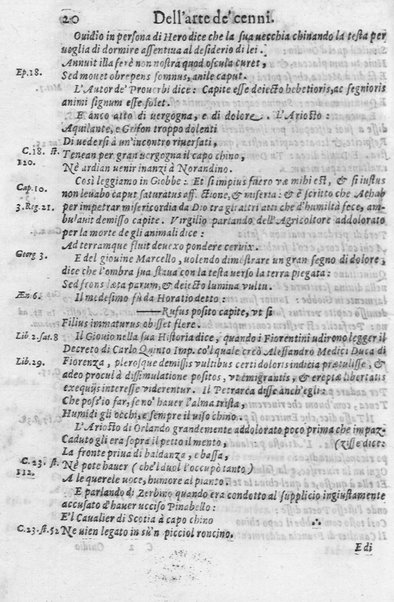 20 Dell'arte de' cenni.
Ouidio in persona di Hero dice che la sua uecchia chinando la testa per
uoglia di dormire assentiua al desiderio di lei.
Ep. 18. Annuit illa ferè non nostra quod oscula curet,
Sed mouet obrepens somnus, anile caput.
L'Autor de' Prouerbi dice: Capite esse deiecto hebetioris, ac segnioris
animi signum esse solet.
E anco atto di uergogna, e di dolore. L'Ariosto:
Aquilante, e Grifon troppo dolenti
Di uedersi a un'incontro riuersati,
C. 18. st. 120. Tenean per gran uergogna il capo chino,
Nè ardian uenir inanzi à Norandino.
Cap. 10. Così leggiamo in Giobbe: Et si impius fuero væ mihi est, & si iustus
non leuabo caput saturatus aff. ctione, & miseria: & è scritto che Athab
3. Reg. 21. per impetrar misericordia da Dio tra gli altri atti che d'humiltà fece, am-
bulauit demisso capite. Virgilio parlando dell'Agricoltore addolorato
per la morte de gli animali dice:
Georg 3. Ad terramque fluit deuexo pondere ceruix.
E del giouine Marcello, uolendo dimostrare un gran segno di dolore,
dice che l'ombra sua staua con la testa uerso la terra piegata:
Æn 6. Sed frons læta parum, & deiecto lumina vultu.
Il medesimo fù da Horatio detto:
Lib. 2. sat. 8 ——Rufus posito capite, vt si
Filius immaturus obisset flere.
Il Giouio nella sua Historia dice, quando i Fiorentini udirono legger il
Decreto di Carlo Quinto Imp. co'l quale creò Alessandro Medici Duca di
Lib. 29. Fiorenza, plerosque demissis vultibus certi doloris indicia prætulisse, &
adeo procul à dissimulatione positos, vt emigrantis, & ereptæ libertatis
exequijs interesse viderentur. Il Petrarca disse anch'egli:
Che poss'io far, se no' hauer l'alma trista,
Humidi gli occhi, e sempre il uiso chino.
L'Ariosto di Orlando grandemente addolorato poco prima che impaz-
Caduto gli era sopra il petto il mento, (zisse dice:
La fronte priua di baldanza, e bassa,
C. 23. st. 112. Nè pote hauer (che'l duol l'occupò tanto)
A le querele uoce, humore al pianto.
E parlando di Zerbino quando era condotto al supplicio ingiustamente
accusato d'hauer ucciso Pinabello:
E'l Caualier di Scotia à capo chino
C. 23. st. 52 Ne uien legato in sù'n picciol roncino.
E di